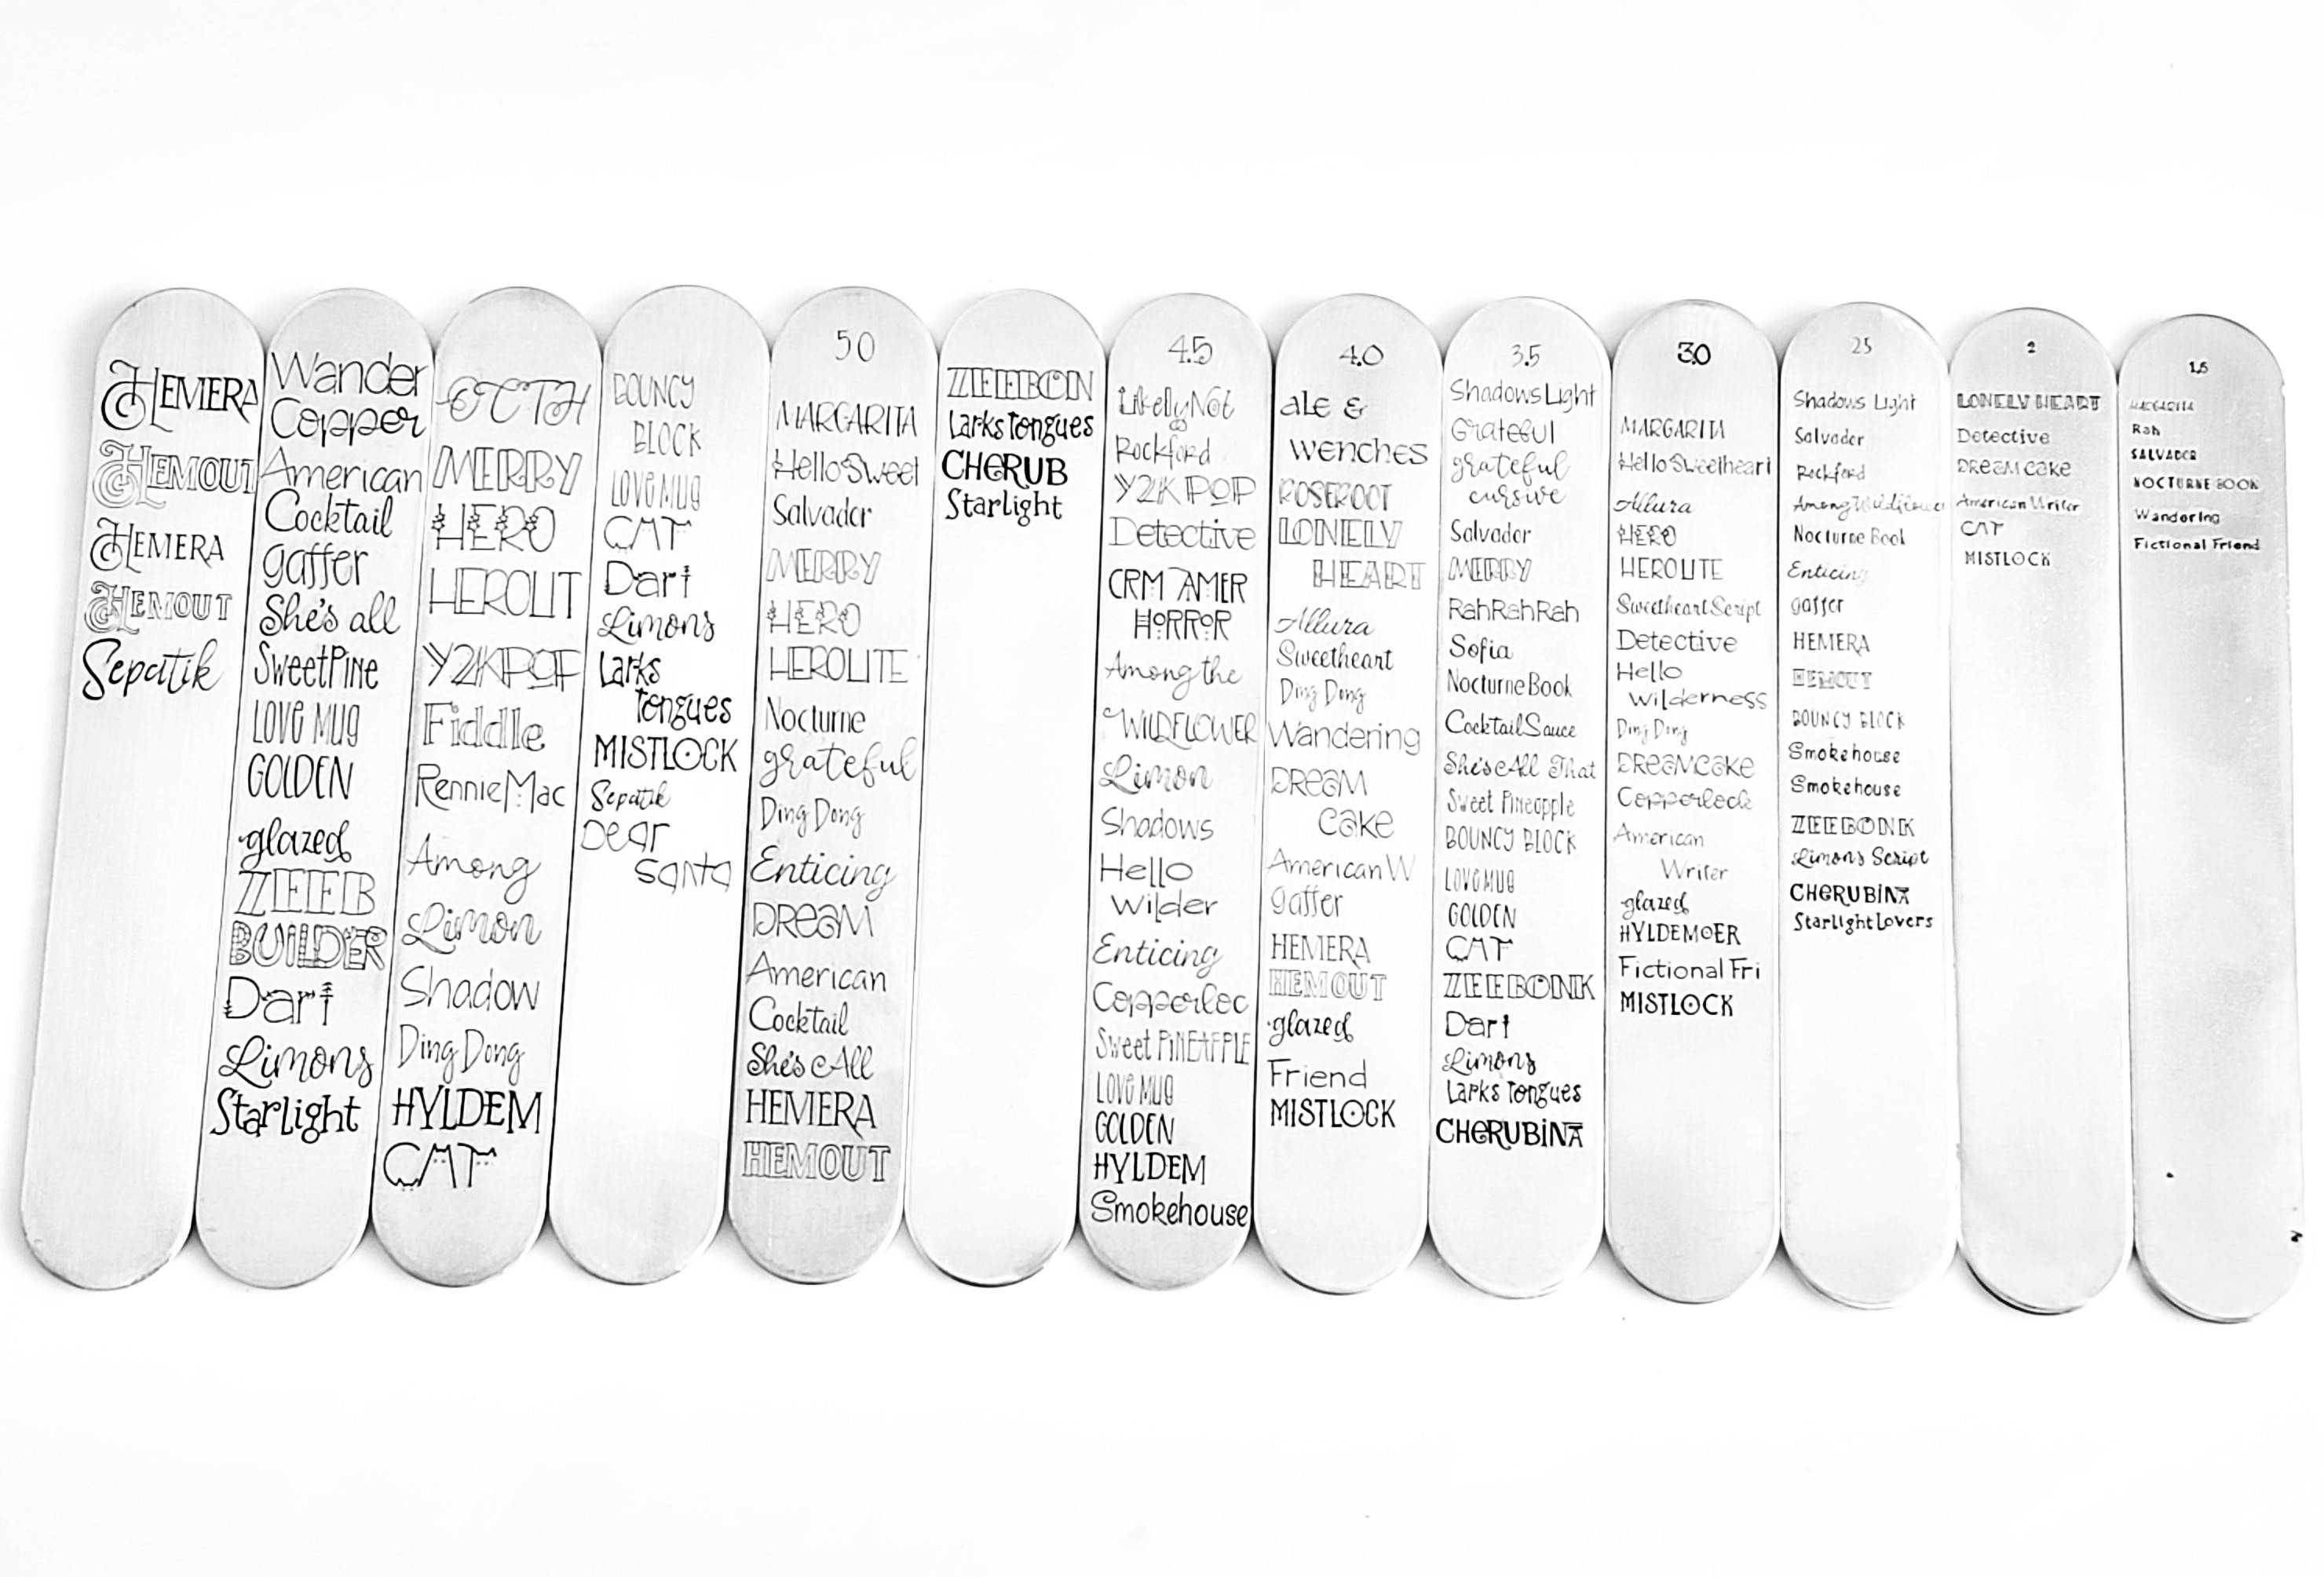 HEMERA
HEMOUT
HEMERA
HEMOUT
Sepatik
Wander
Copper
American
Cocktail
gaffer
She's all
SweetPine
LOVE MUG
GOLDEN
glazed
ZEEB
BUILDER
Dart
Limons
Starlight
OCTH
MERRY
HERO
HEROLIT
Y2KPOP
Fiddle
RennieMac
Among
Limon
Shadow
Ding Dong
HYLDEM
CAT
BOUNCY
BLOCK
LOVE MUG
CAT
Dart
Limons
Larks
Tongues
MISTLOCK
Sepatik
Dear
Santa
50
MARGARITA
Hello Sweet
Salvador
MERRY
HERO
HEROLITE
Nocturne
grateful
Ding Dong
Enticing
DREAM
American
Cocktail
She's All
HEMERA
HEMOUT
ZEEBON
Larks Tongues
CHERUB
Starlight
4.5
LikelyNot
Rockford
Y2K POP
Detective
CRM AMER
HORROR
Among the
WILDFLOWER
Limon
Shadows
Hello
Wilder
Enticing
Copperloc
Sweet PINEAPPLE
LOVE MUG
GOLDEN
HYLDEM
Smokehouse
4.0
ale &
wenches
ROSEROOT
LONELY
HEART
Allura
Sweetheart
Ding Dong
Wandering
DREAM
CAKE
American W
gaffer
HEMERA
HEMOUT
glazed
Friend
MISTLOCK
3.5
Shadows Light
Grateful
grateful
cursive
Salvador
MERRY
RahRahRah
Sofia
Nocturne Book
Cocktail Sauce
She's All That
Sweet Pineapple
BOUNCY BLOCK
LOVE MUG
GOLDEN
CAT
ZEEBONK
Dart
Limons
Larks Tongues
CHERUBINA
3.0
MARGARITA
Hello Sweetheart
Allura
HERO
HEROLITE
Sweetheart Script
Detective
Hello
Wilderness
Ding Dong
DREAMCAKE
Copperlock
American
Writer
glazed
HYLDEMOER
Fictional Fri
MISTLOCK
25
Shadows Light
Salvador
Rockford
Among Wildflower
Nocturne Book
Enticing
gaffer
HEMERA
HEMOUT
BOUNCY BLOCK
Smokehouse
Smokehouse
ZEEBONK
Limons Script
CHERUBINA
Starlight Lovers
2
LONELY HEART
Detective
DREAMCAKE
American Writer
CAT
MISTLOCK
1.5
MARGARITA
Rah
SALVADOR
NOCTURNE BOOK
Wandering
Fictional Friend